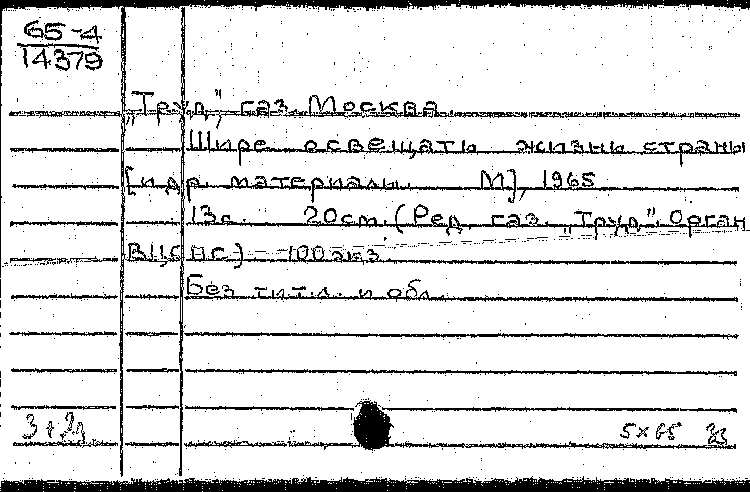 65-4
14379
„Труд”, газ. Москва.
Шире освещать жизнь страны
[и др. материалы. М], 1965
13с. 20см. (Ред. газ. „Труд”. Орган
ВЦСПС) - 100 экз.
Без титл. и обл.
5×65